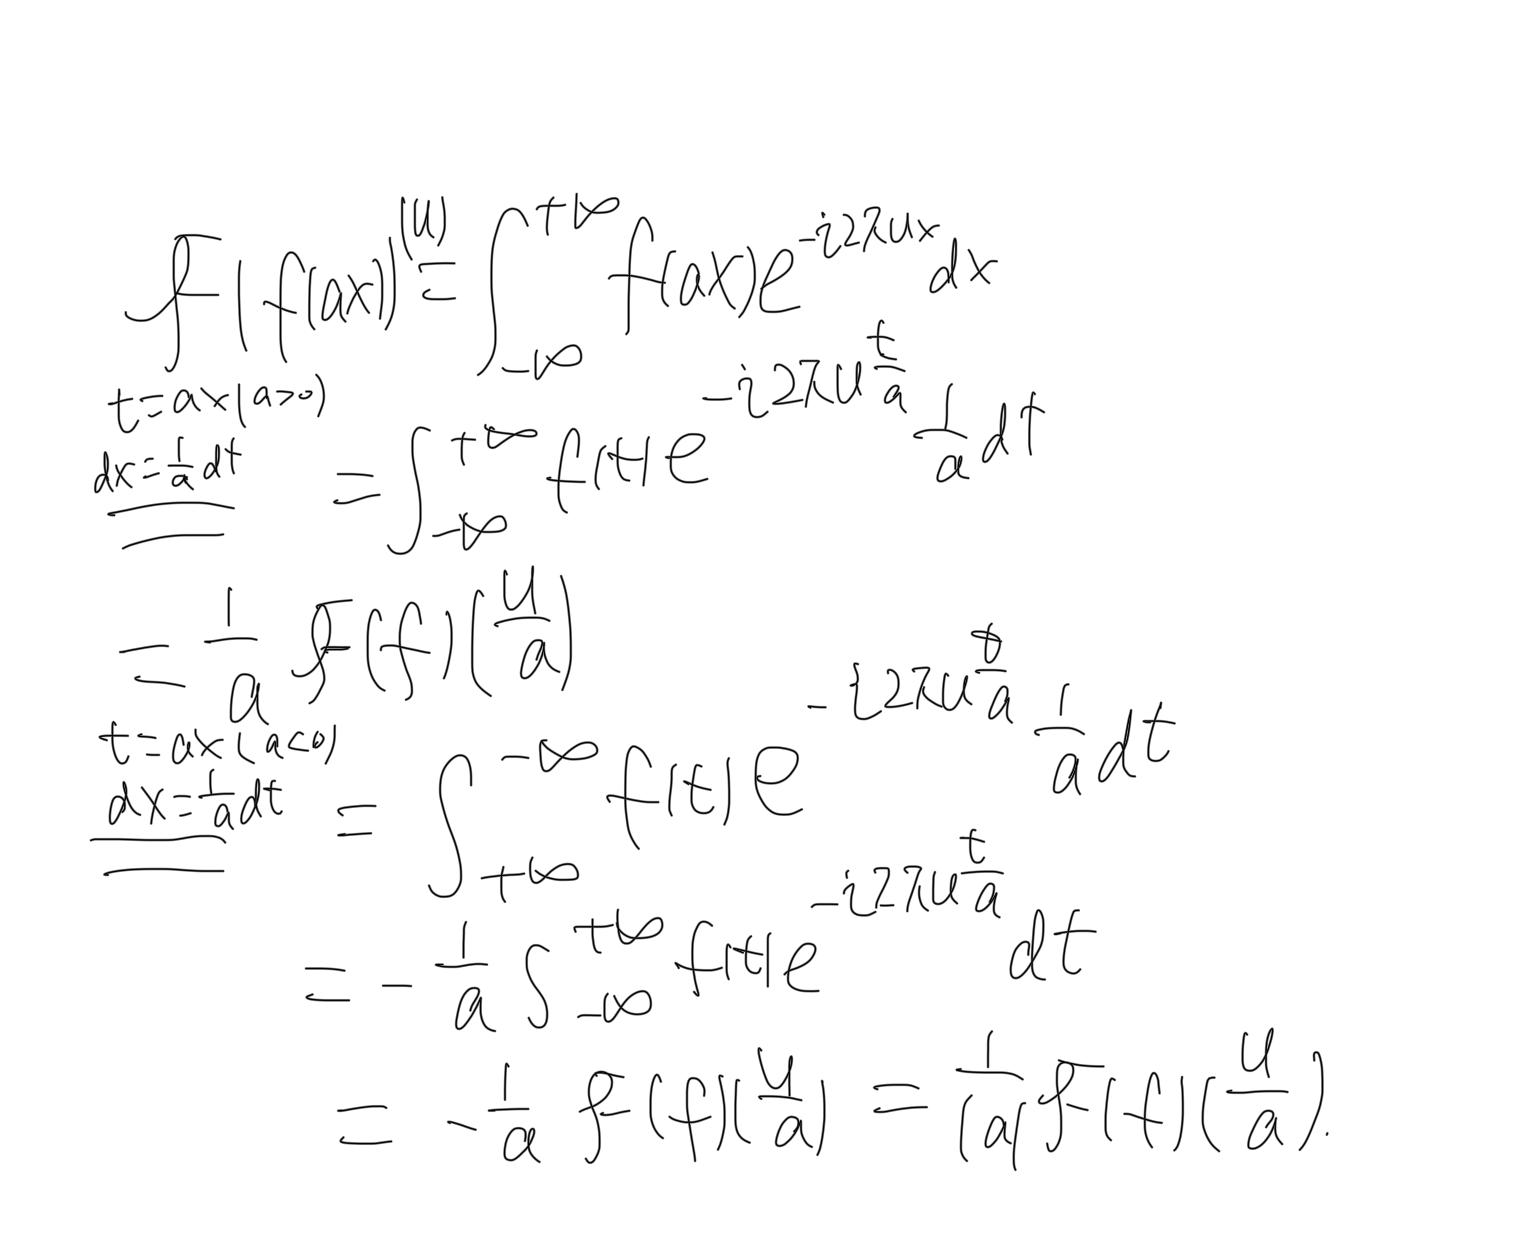 F(f(ax))(u) = ∫_{-∞}^{+∞} f(ax) e^{-i2πux} dx
t = ax (a>0)
dx = \frac{1}{a} dt = ∫_{-∞}^{+∞} f(t) e^{-i2πu\frac{t}{a}} \frac{1}{a} dt
= \frac{1}{a} F(f)(\frac{u}{a})
t = ax (a<0)
dx = \frac{1}{a} dt = ∫_{+∞}^{-∞} f(t) e^{-i2πu\frac{t}{a}} \frac{1}{a} dt
= -\frac{1}{a} ∫_{-∞}^{+∞} f(t) e^{-i2πu\frac{t}{a}} dt
= -\frac{1}{a} F(f)(\frac{u}{a}) = \frac{1}{|a|} F(f)(\frac{u}{a}).